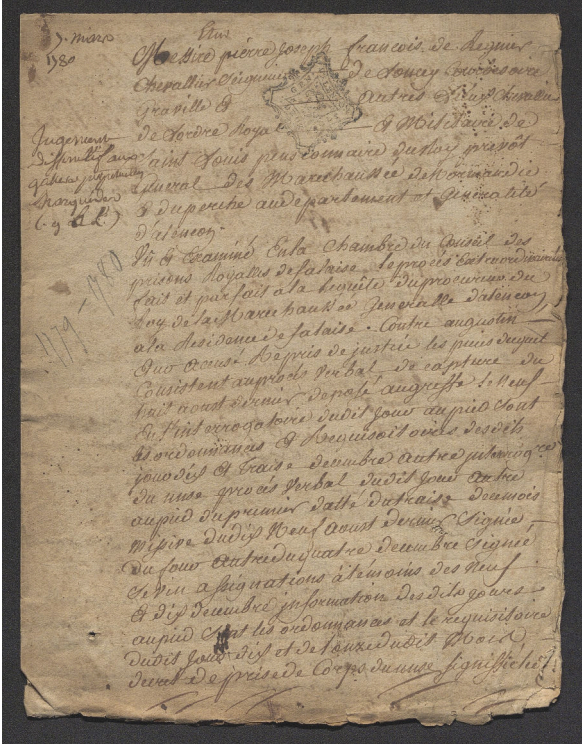 5. mars
1780
Jugement
deffinitif aux
galeres perpetuelles
1779 - 1780
Messire pierre Joseph francois de Regnier
Chevallier Seigneur de
Graville & autres Lieux Chevallier
de Lordre Royal & Militaire de
Saint Louis pensionnaire du Roy prevôt
General des Marechaussée de Normandie
& du perche au departement et Generalité
d'alencon
Vû & Examiné En la Chambre du Conseil des
prisons Royalles de falaise Le procès Extraordinairement
fait et parfait à la Requête du procureur du
Roy de la Marechaussée Generalle d'alencon
a la Residence de falaise. Contre augustin
Duo accusé Repris de justice les pieces duquel
Consistent au procès Verbal de capture du
huit aoust dernier deposé au greffe le Neuf
En l'interrogatoire dudit Jour au pied sont
Les ordonnances & Requisitoires des dits
jours dix et traise decembre autre interrogre
du onse procès Verbal dudit Jour autre
au pied du premier datté du traise decembre
missive du dix Neuf aoust dernier Signée
du four autre du quatre decembre Signé
assignations à témoins des Neuf
& dix decembre information des dits Jours
au pied sont les ordonnances et le requisitoire
dudit Jour dix et de l'onze dudit Mois
decret de prise de Corps du onse Signiffiée